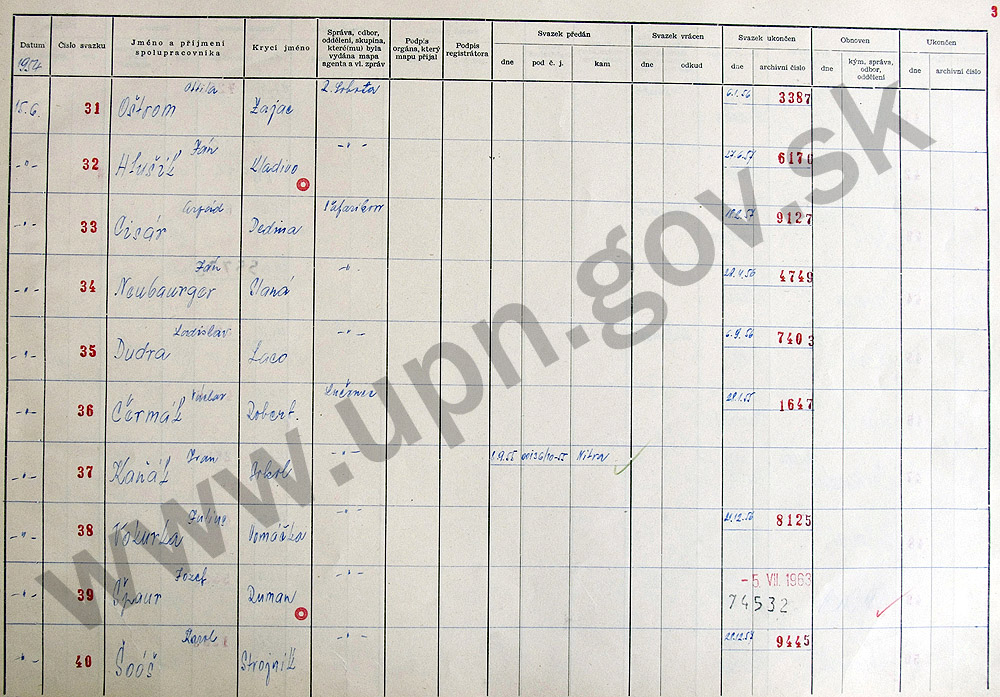 3
Datum Číslo svazku Jméno a příjmení spolupracovníka Krycí jméno Správa, odbor, oddělení, skupina, které(mu) byla vydána mapa agenta a vl. zpráv Podpis orgána, který mapu přijal Podpis registrátora Svazek předán Svazek vrácen Svazek ukončen Obnoven Ukončen
dne pod č. j. kam dne odkud dne archivní číslo dne kým, správa, odbor, oddělení dne archivní číslo
1954
15.6. 31 Oštrom Zajac 2. Sobota 6.1.56 3387
-"- 32 Hlušík Ján Kladivo -"- 6170
-"- 33 Cisár Arpád Dedina 9127
-"- 34 Neubaurger Ján Slaná -"- 28.4.56 4749
-"- 35 Dudra Ladislav Laco -"- 6.9.56 7403
-"- 36 Čermák Václav Robert. Lučenec 28.1.55 1647
-"- 37 Kaňák Ivan -"- 1.9.55 Nitra
-"- 38 Vokurka Julius Vomáčka -"- 21.12.56 8125
-"- 39 Špaur Jozef Ruman -"- - 5. VII. 1963
74532
-"- 40 Šoóš Karol Strojník -"- 9445
www.upn.gov.sk